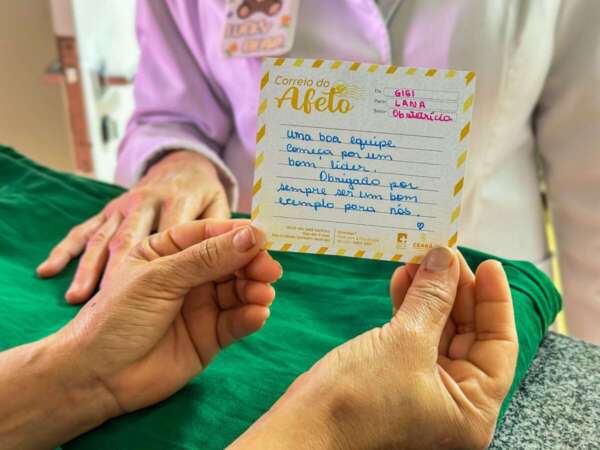 Correio do
Afeto
De: GIGI
Para: LANA
Setor: Obstetrícia
uma boa equipe
começa por um
bom líder.
Obrigado por
sempre ser um bom
exemplo para nós.
CEARÁ